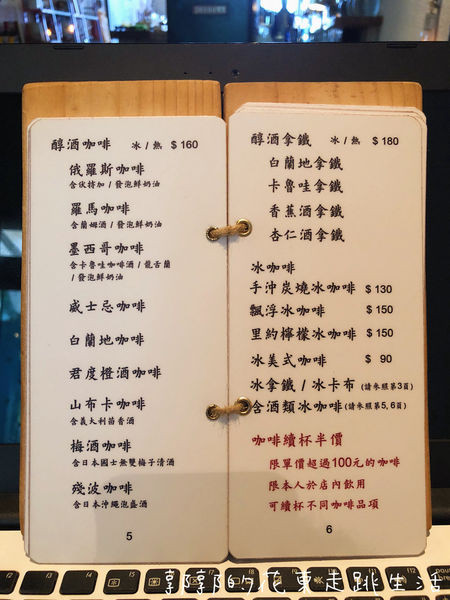 醇酒咖啡 冰/熱 $160
俄羅斯咖啡
含伏特加/發泡鮮奶油
羅馬咖啡
含蘭姆酒/發泡鮮奶油
墨西哥咖啡
含卡魯哇咖啡酒/龍舌蘭
/發泡鮮奶油
威士忌咖啡
白蘭地咖啡
君度橙酒咖啡
山布卡咖啡
含義大利茴香酒
梅酒咖啡
含日本國士無雙梅子清酒
殘波咖啡
含日本沖繩泡盛酒
5
醇酒拿鐵 冰/熱 $180
白蘭地拿鐵
卡魯哇拿鐵
香蕉酒拿鐵
杏仁酒拿鐵
冰咖啡
手沖炭燒冰咖啡 $130
飄浮冰咖啡 $150
里約檸檬冰咖啡 $150
冰美式咖啡 $ 90
冰拿鐵/冰卡布(請參照第3頁)
含酒類冰咖啡(請參照第5,6頁)
咖啡續杯半價
限單價超過100元的咖啡
限本人於店內飲用
可續杯不同咖啡品項
6
郭郭的花東走跳生活